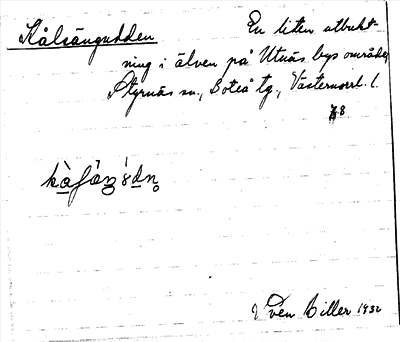 Kålsängudden
En liten utbukt-
ning i älven på Utnäs bys område,
Styrnäs sn., Boteå tg., Västernorrl. l.
Sven Biller 1932